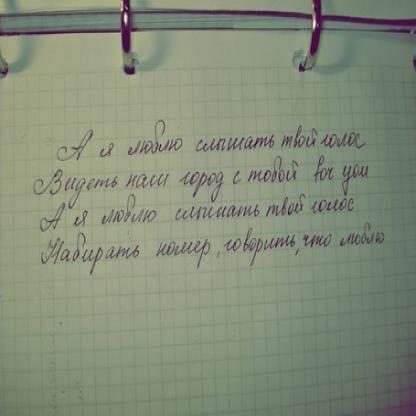 А я люблю слышать твой голос
Видеть наш город с тобой
А я люблю слышать твой голос
Набирать номер, говорить, что люблю